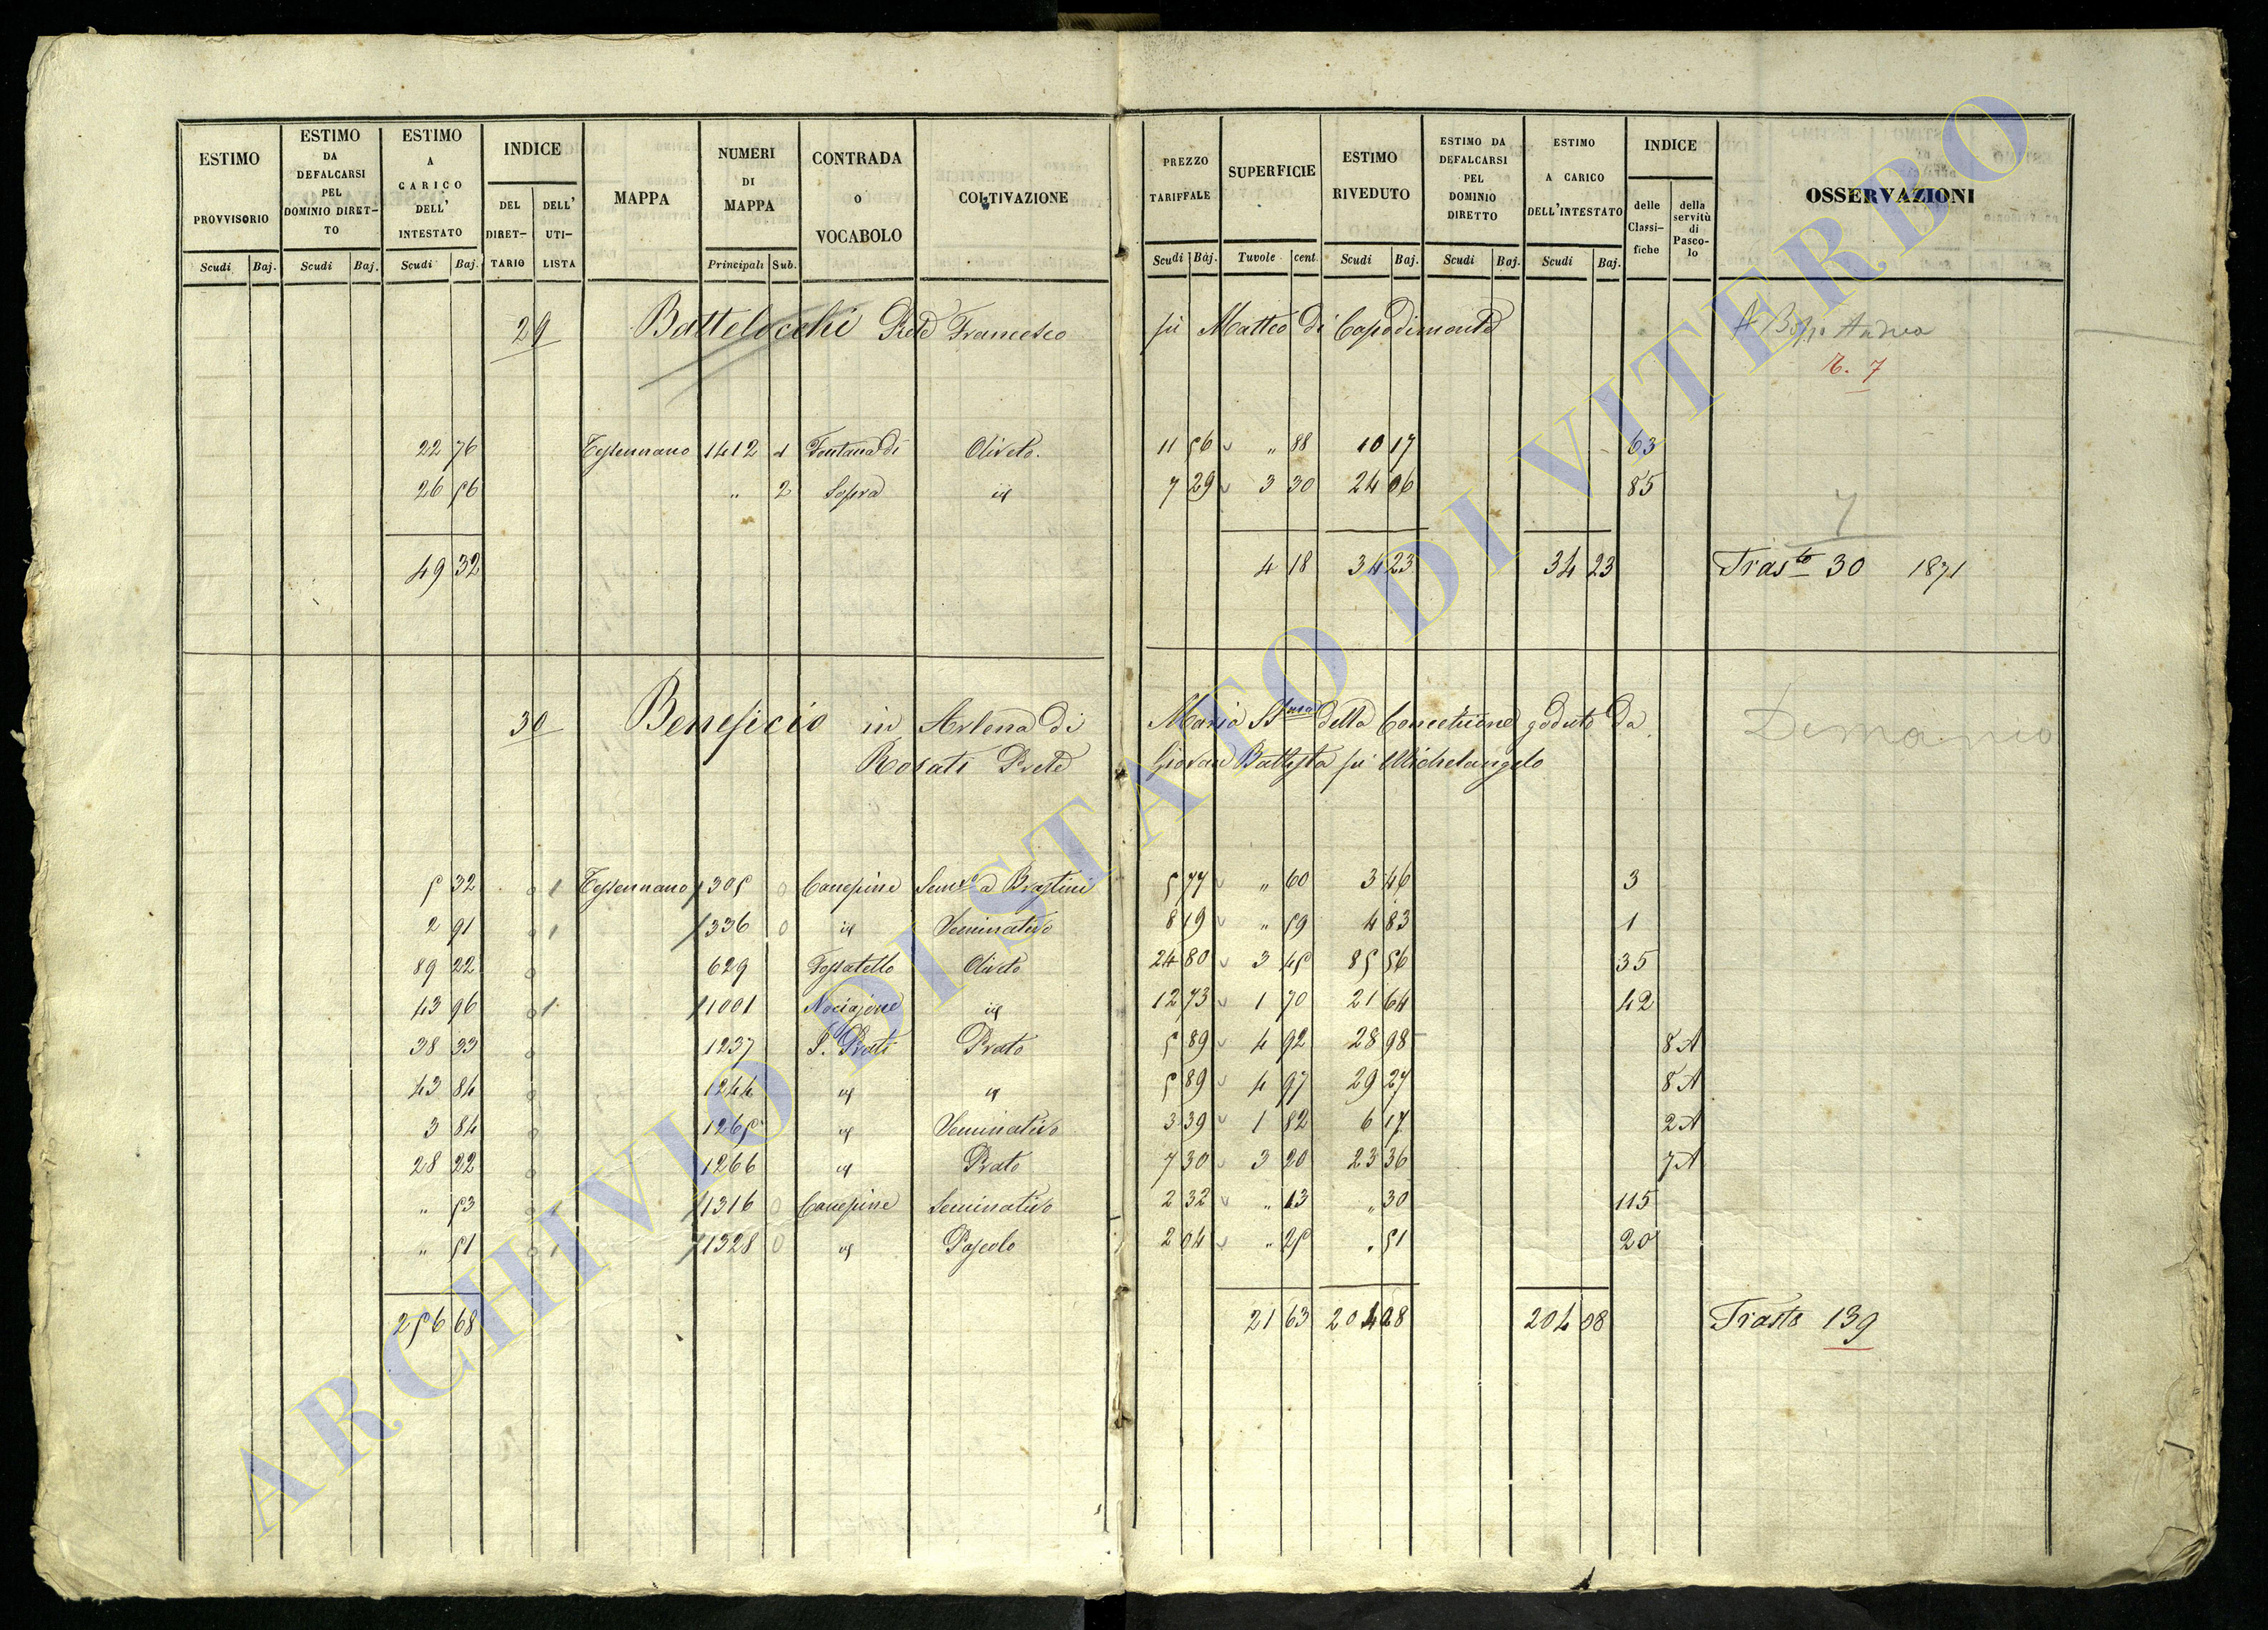 ESTIMO PROVVISORIO Scudi Baj.
ESTIMO DA DEFALCARSI PEL DOMINIO DIRET-TO Scudi Baj.
ESTIMO A CARICO DELL' INTESTATO Scudi Baj.
INDICE DEL DIRET-TARIO DELL' UTI-LISTA
MAPPA
NUMERI DI MAPPA Principali Sub.
CONTRADA O VOCABOLO
COLTIVAZIONE
PREZZO TARIFFALE Scudi Baj.
SUPERFICIE Tavole cent.
ESTIMO RIVEDUTO Scudi Baj.
ESTIMO DA DEFALCARSI PEL DOMINIO DIRETTO Scudi Baj.
ESTIMO A CARICO DELL'INTESTATO Scudi Baj.
INDICE delle Classi-fiche della servitù di Pasco-lo
OSSERVAZIONI
29 Battelocchi Prete Francesco fu Matteo di Capodimonte Andrea
7
22 76 Tessennano 1412 1 Fontana di Oliveto. 11 56 " 88 10 17 63
26 56 " 2 Sopra id 7 29 3 30 24 06 85
7
49 32 4 18 34 23 34 23 Trasto 30 1871
30 Beneficio in Arlena di Maria SSma della Concezione goduto da Demanio
Rosati Prete Giovan Battista fu Michelangelo
5 32 0 1 Tessennano 305 0 Canepine Semvo a Bragtini 5 77 " 60 3 46 3
2 91 0 1 336 0 id Seminativo 8 19 " 59 4 83 1
89 22 0 629 Fossatello Oliveto 24 80 3 45 85 56 35
43 96 0 1 1001 Nociajone id 12 73 1 70 21 64 42
38 33 0 1237 I. Prati Prato 5 89 4 92 28 98 8 A
43 84 0 1244 id id 5 89 4 97 29 27 8 A
3 84 0 1265 id Seminativo 3 39 1 82 6 17 2 A
28 22 0 1266 id Prato 7 30 3 20 23 36 7 A
" 53 0 1 1316 0 Canepine Seminativo 2 32 " 13 " 30 115
" 51 0 1 1328 0 id Pascolo 2 04 " 25 " 51 20
256 68 21 63 204 08 204 08 Trasto 139
ARCHIVIO DI STATO DI VITERBO